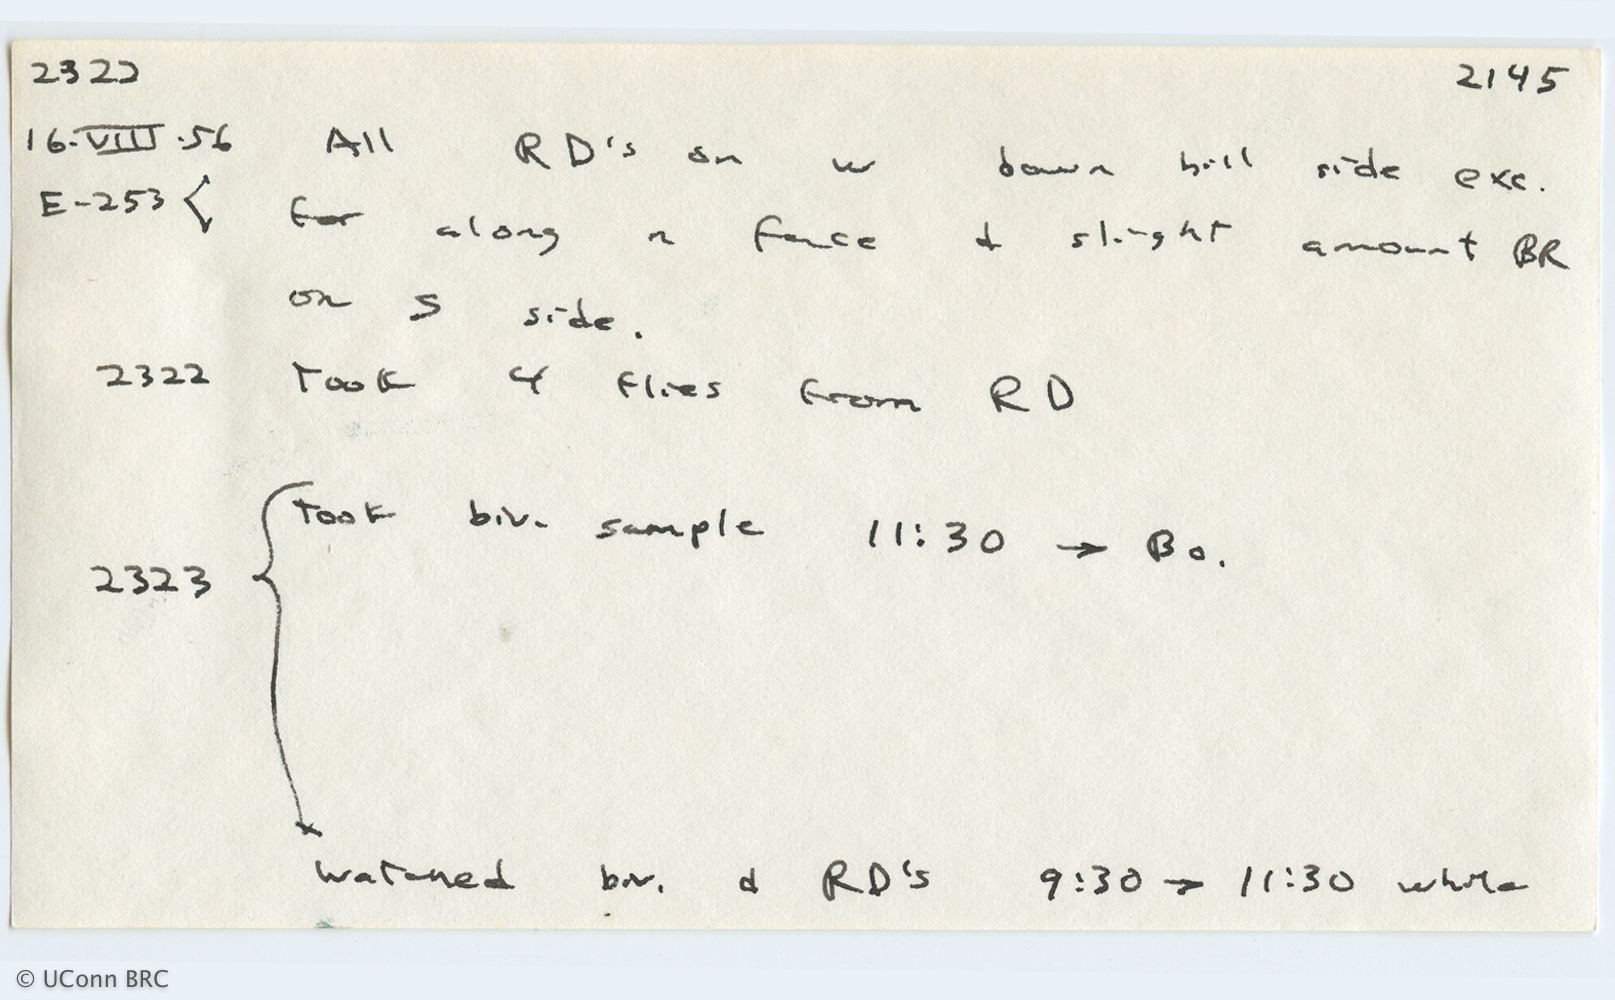 2322 2145
16.VIII.56 All RD's on w down hill side exc.
E-253 for along n fence & slight amount BR
on S side.
2322 Took 4 flies from RD
Took biv. sample 11:30 → Bo.
2323
watched biv. & RD's 9:30 → 11:30 while
© UConn BRC